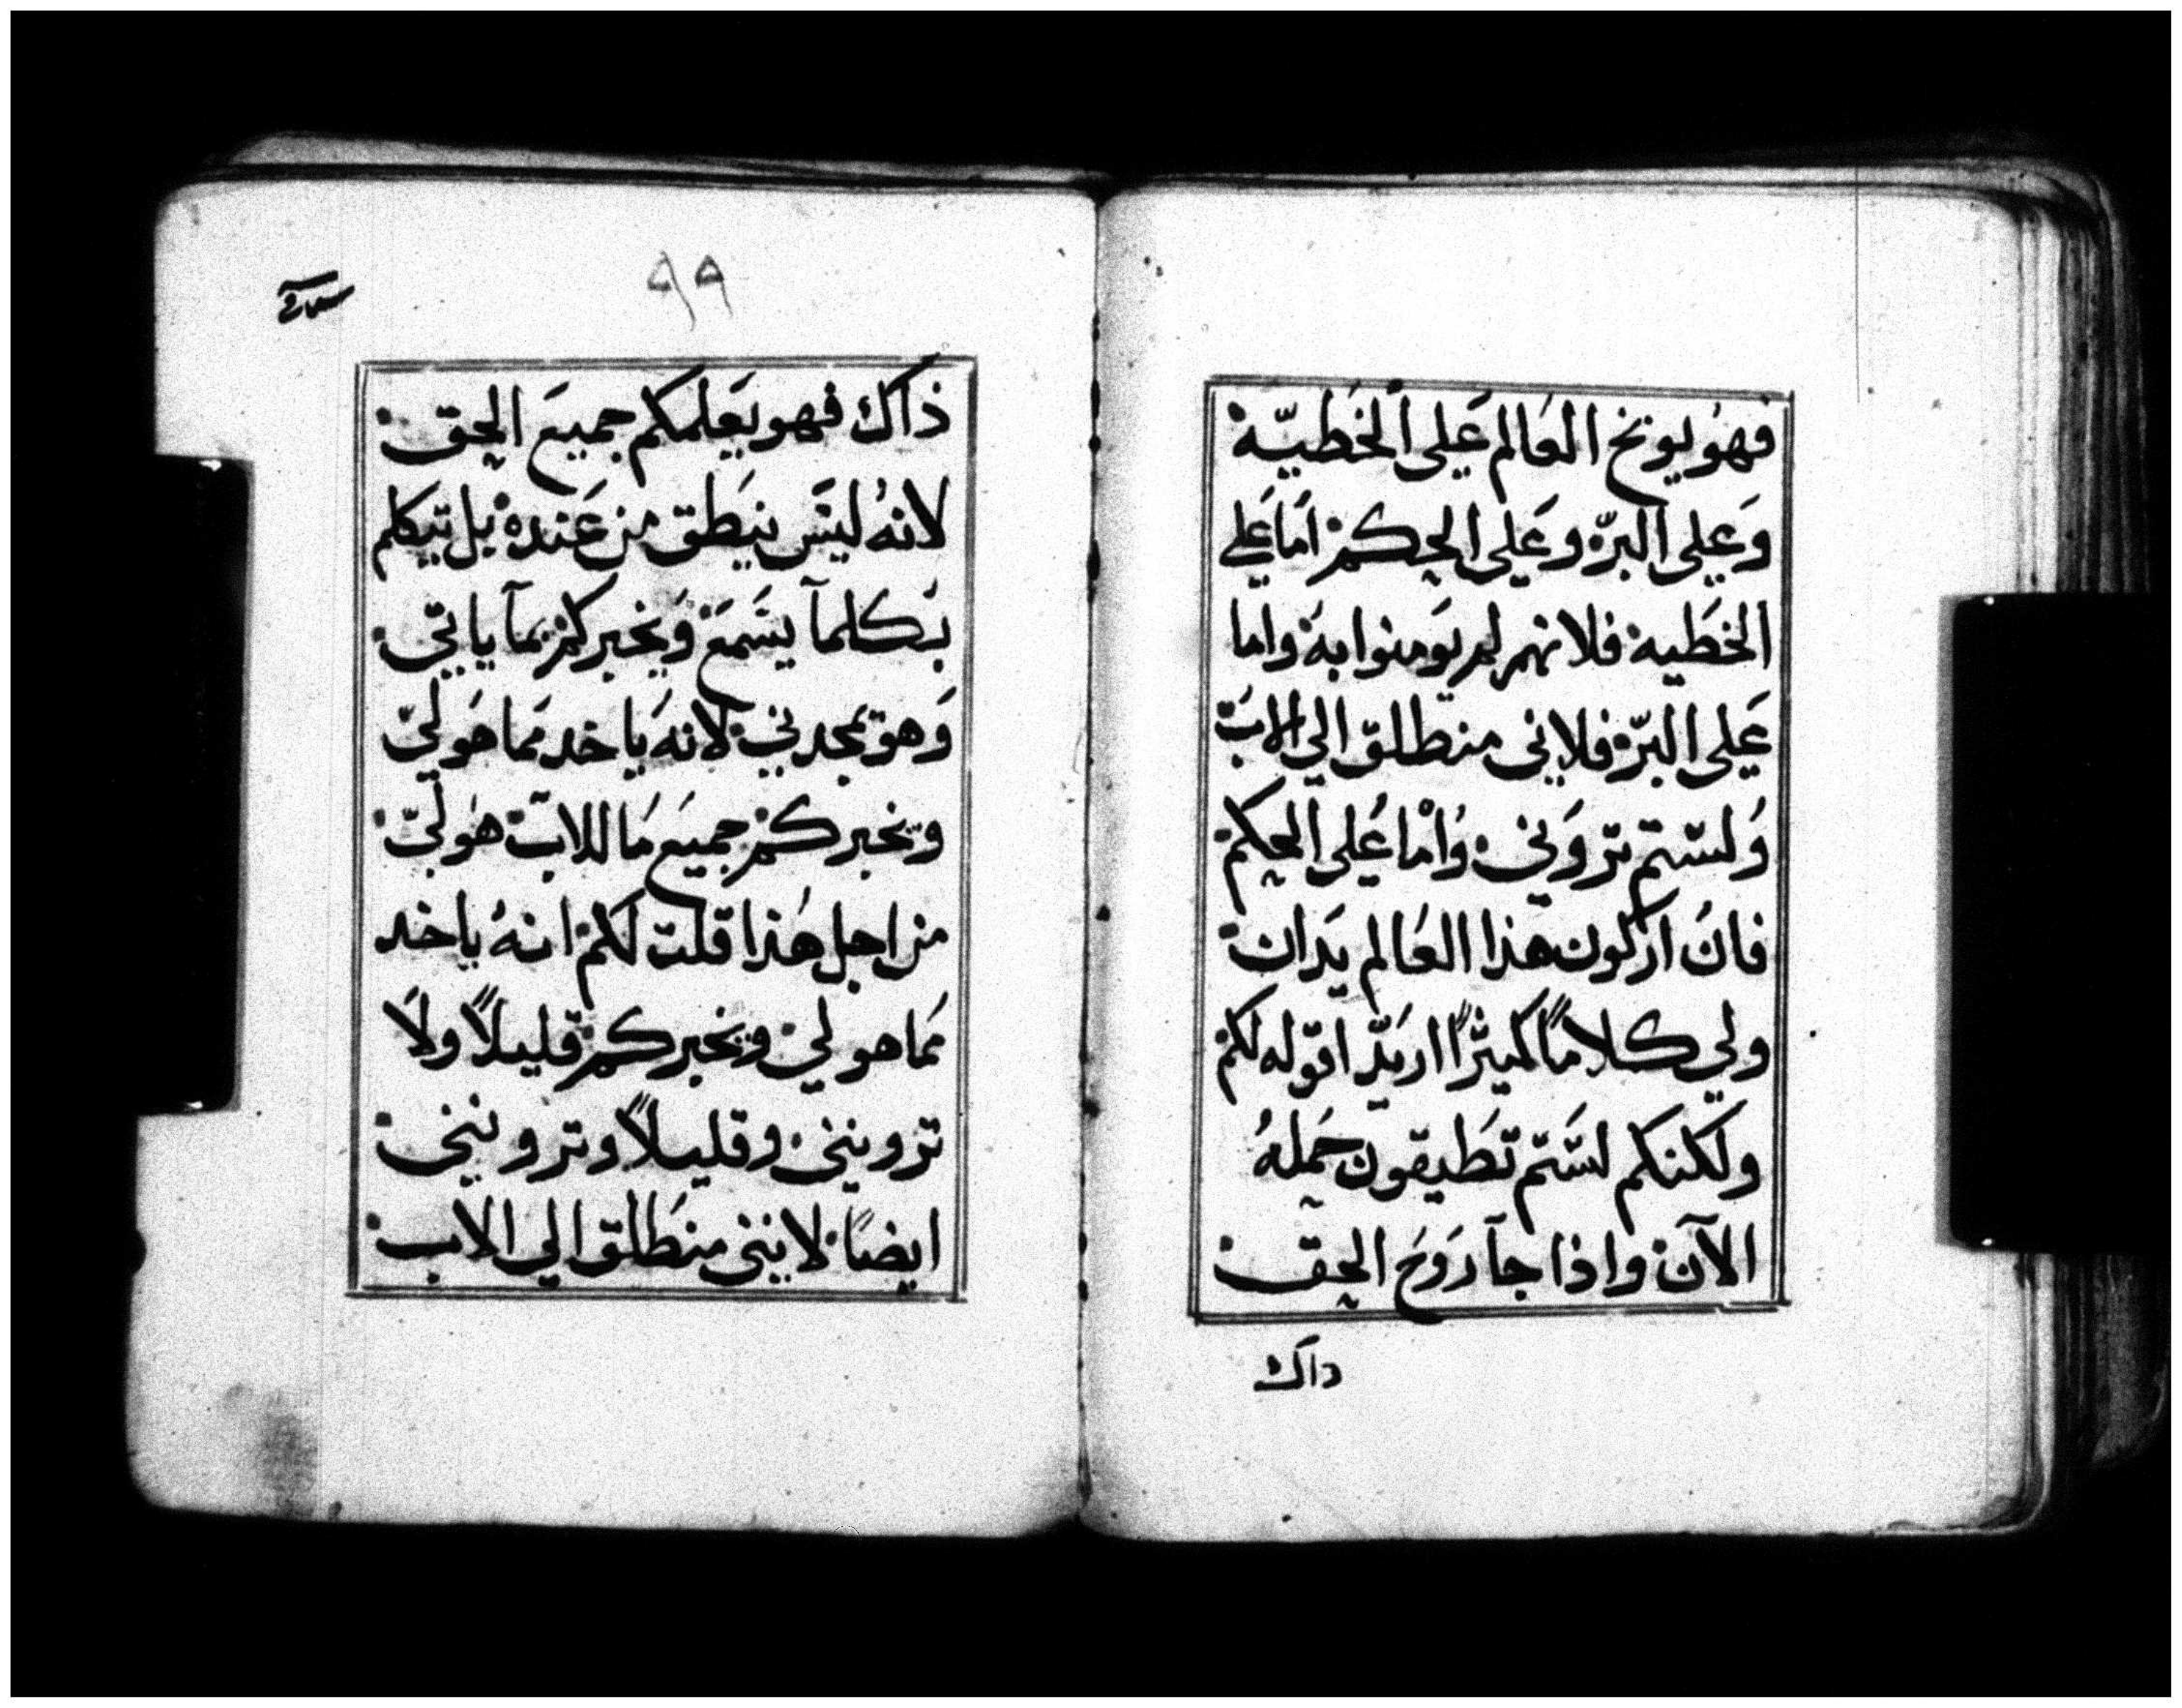 فهو يوبخ العالم على الخطية
وعلى البر وعلى الحكم اما على
الخطيه فلانهم لم يومنوا به واما
على البر فلاني منطلق الي الاب
ولستم تروني واما على الحكم
فان اركون هذا العالم يدان
ولي كلاما كثيرا اريد اقوله لكم
ولكنكم لستم تطيقون حمله
الآن واذا جآ روح الحق
داك
٩٩
ذاك فهو يعلمكم جميع الحق
لانه ليس ينطق من عنده بل يتكلم
بكلمآ يسمع ويخبركم بمآ ياتي
وهو يمجدني لانه ياخد مما هو لي
ويخبركم جميع ما للاب هو لي
من اجل هذا قلت لكم انه ياخد
مما هو لي ويخبركم قليلاً ولا
ترونني وقليلاً وترونني
ايضاً لانني منطلق الي الاب